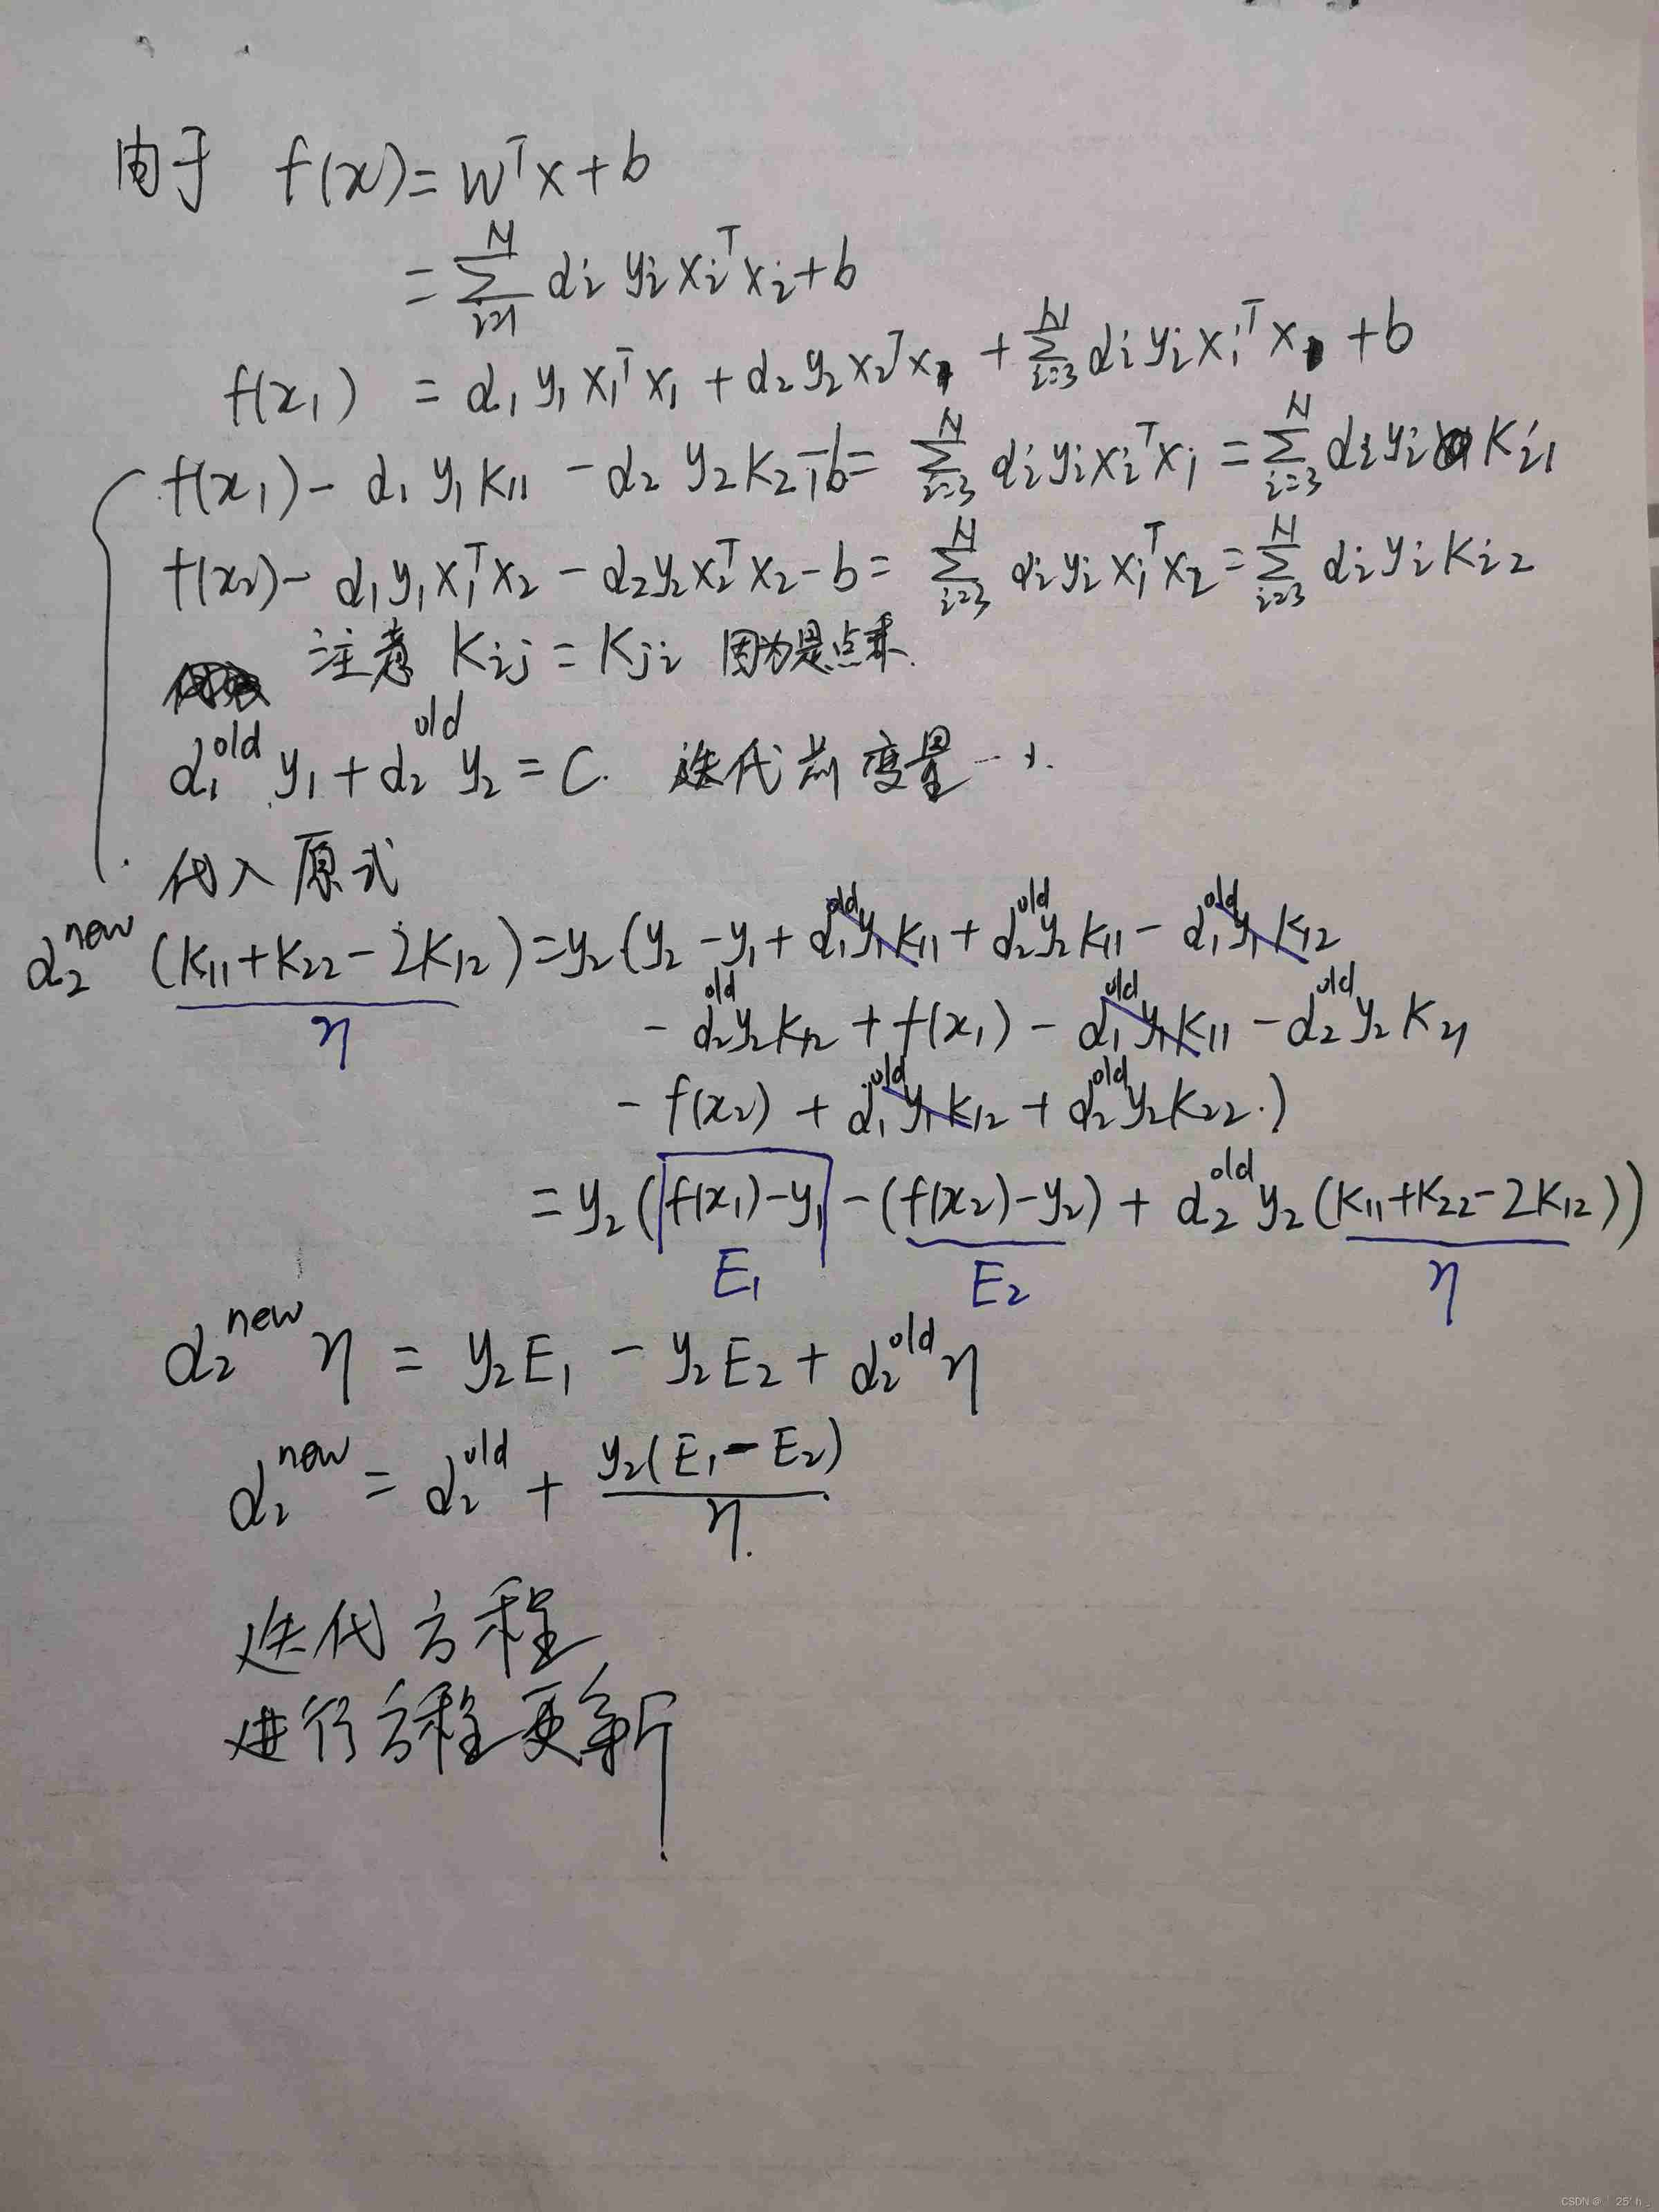 由于 f(x) = w^T x + b
= Σ_{i=1}^{N} α_i y_i x_i^T x_i + b
f(x_1) = α_1 y_1 x_1^T x_1 + α_2 y_2 x_2^T x_1 + Σ_{i=3}^{N} α_i y_i x_i^T x_1 + b
f(x_1) - α_1 y_1 K_11 - α_2 y_2 K_21 - b = Σ_{i=3}^{N} α_i y_i x_i^T x_1 = Σ_{i=3}^{N} α_i y_i K_i1
f(x_2) - α_1 y_1 x_1^T x_2 - α_2 y_2 x_2^T x_2 - b = Σ_{i=3}^{N} α_i y_i x_i^T x_2 = Σ_{i=3}^{N} α_i y_i K_i2
注意 K_ij = K_ji 因为是点乘.
α_1^old y_1 + α_2^old y_2 = C. 迭代前变量
代入原式
α_2^new (K_11 + K_22 - 2K_12) = y_2 (y_2 - y_1 + α_1^old y_1 K_11 + α_2^old y_2 K_11 - α_1^old y_1 K_12
η
- α_2^old y_2 K_12 + f(x_1) - α_1^old y_1 K_11 - α_2^old y_2 K_21
- f(x_2) + α_1^old y_1 K_12 + α_2^old y_2 K_22.)
= y_2 (f(x_1) - y_1 - (f(x_2) - y_2) + α_2^old y_2 (K_11 + K_22 - 2K_12))
E_1 E_2 η
α_2^new η = y_2 E_1 - y_2 E_2 + α_2^old η
α_2^new = α_2^old + y_2(E_1 - E_2) / η.
迭代方程
进行方程更新
CSDN @ 25' h_